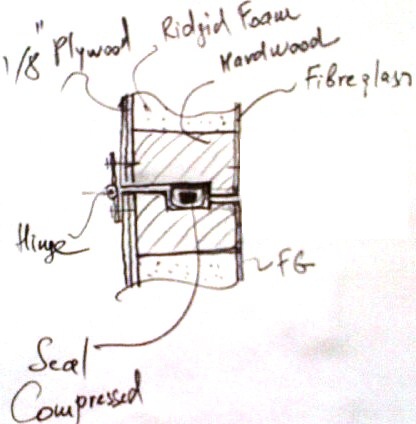 1/8" Plywood
Ridgid Foam
Hardwood
Fibreglass
Hinge
FG
Seal
Compressed